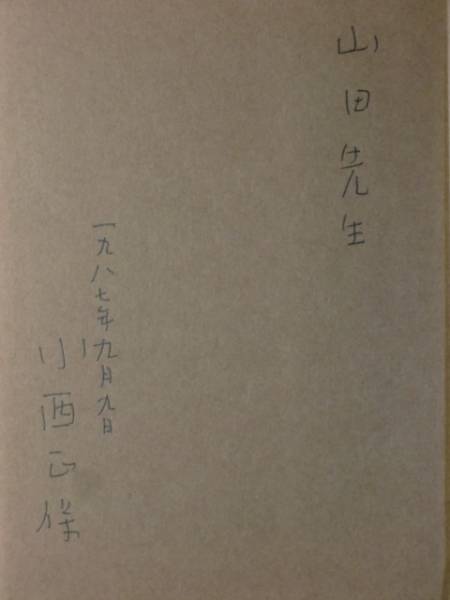 山田先生
一九八七年九月九日
小西正保